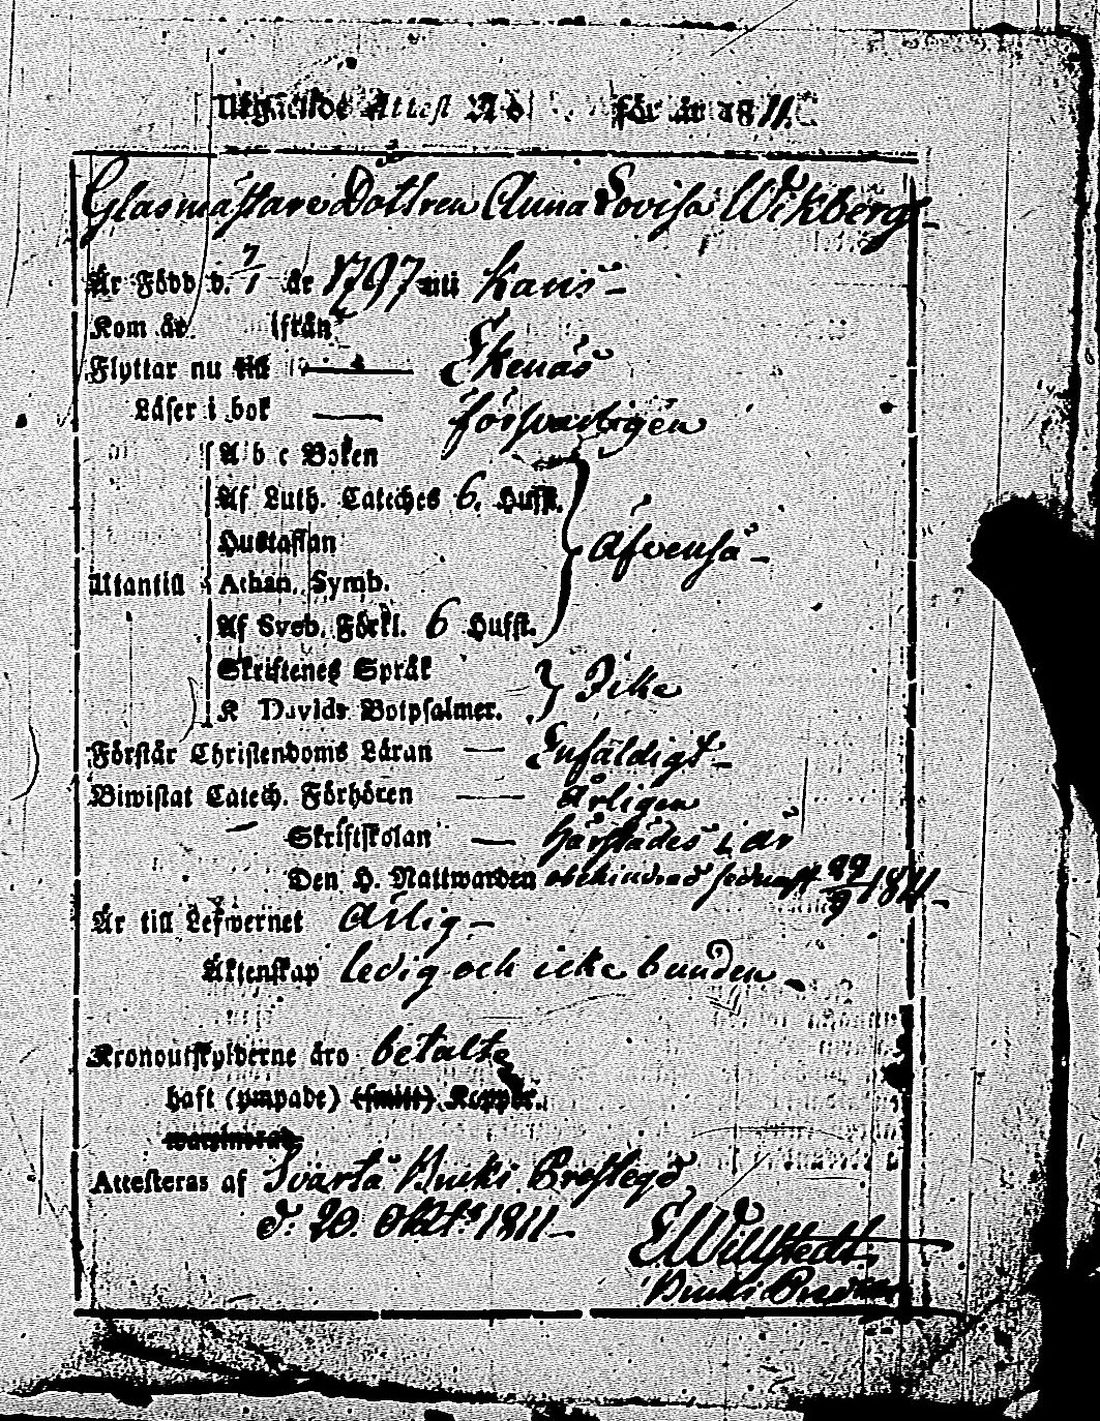 Utgående Attest No för år 1811.
Glasmästare Dottren Anna Lovisa Wikberg
Är Född d. 7/1 år 1797 uti Karis
Kom år ifrån
Flyttar nu till Ekenäs
Läser i bok försvarligen
A b c Boken
Af Luth. Cateches 6. Hufst.
Hustaflan Äfvenså
Utantill Athan. Symb.
Af Sveb. Förkl. 6 Hufst.
Skriftenes Språk Icke
K Davids Botpsalmer.
Förstår Christendoms Läran Enfäldigt
Biwistat Catech. Förhören Årligen
Skriftskolan härstädes i år
Den H. Nattwarden obehindrad sednast 29/9 1811
Är till Lefwernet Ärlig
Äktenskap ledig och icke bunden
Kronoutskylderne äro betalte
haft (ympade) (smitt) Koppor.
waccinerad.
Attesteras af Svartå Bruks Prestegd
d. 20. Okt. 1811
E Willstedt
Bruks